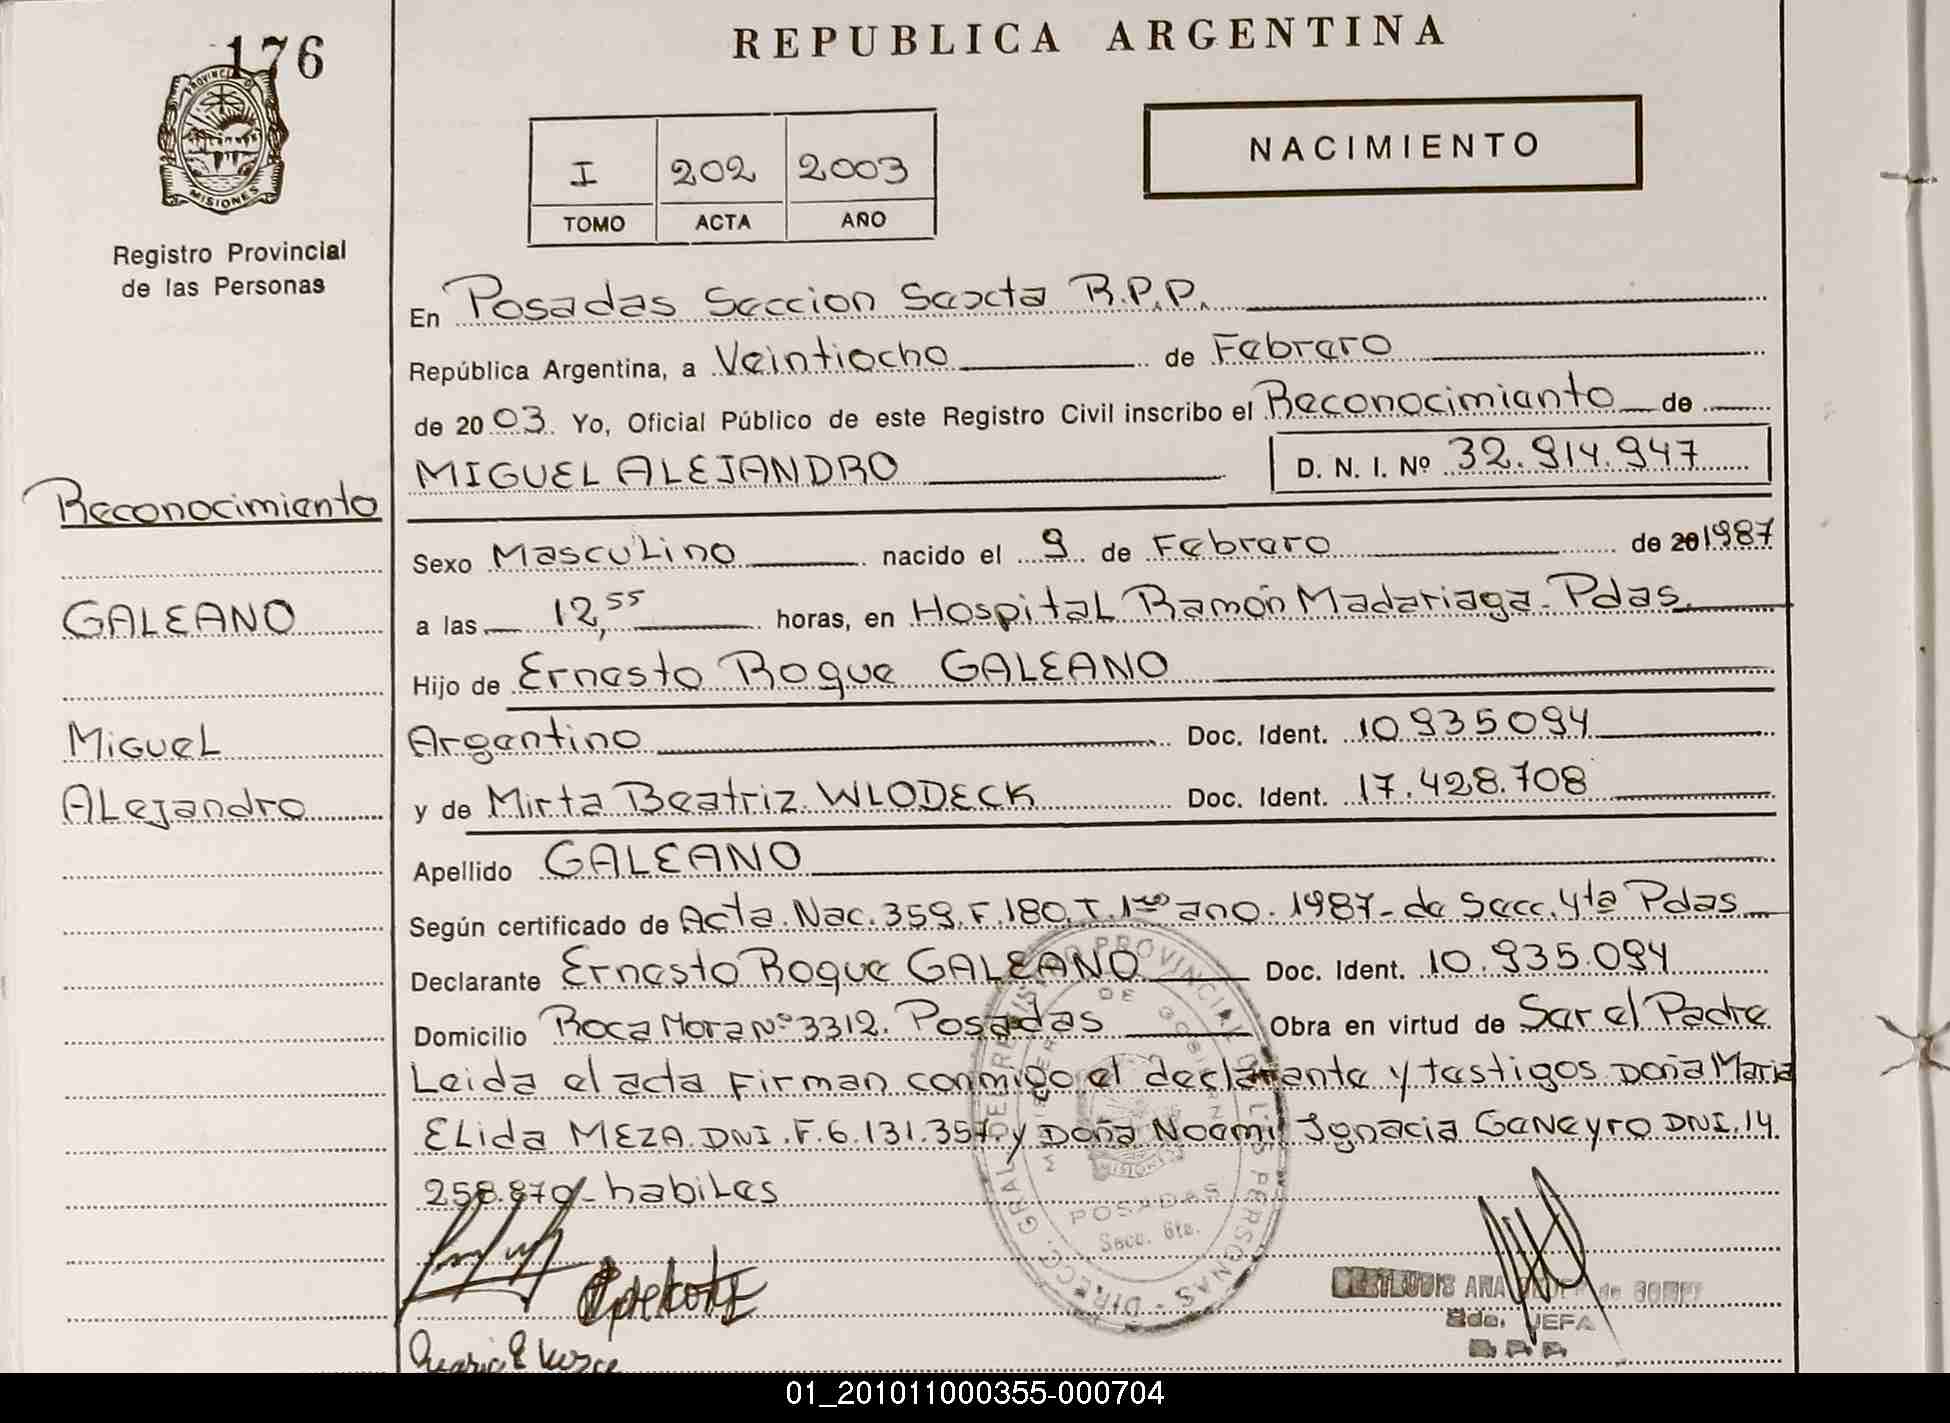 176
PROVINCIA DE
MISIONES
Registro Provincial
de las Personas
REPUBLICA ARGENTINA
I 202 2003
TOMO ACTA AÑO
NACIMIENTO
En Posadas Seccion Sexta R.P.P.
República Argentina, a Veintiocho de Febrero
de 2003. Yo, Oficial Público de este Registro Civil inscribo el Reconocimiento de
MIGUEL ALEJANDRO D. N. I. Nº 32.914.947
Reconocimiento
Sexo Masculino nacido el 9 de Febrero de 201987
GALEANO
a las 12,55 horas, en Hospital Ramón Madariaga - Pdas.
Hijo de Ernesto Roque GALEANO
Miguel
Argentino Doc. Ident. 10.935.094
Alejandro
y de Mirta Beatriz WLODECK Doc. Ident. 17.428.708
Apellido GALEANO
Según certificado de Acta. Nac. 359. F. 180. T. 1ro ano. 1987 - de Secc. 4ta Pdas
Declarante Ernesto Roque GALEANO Doc. Ident. 10.935.094
Domicilio Roca Mora Nº 3312. Posadas Obra en virtud de Ser el Padre
Leida el acta Firman conmigo el declarante y testigos Doña Maria
Elida MEZA. DNI. F. 6.131.357. y Doña Noemi Ignacia Geneyro DNI. 14.
258.870 - habiles
DIRECC. GRAL DE REGISTRO PROVINCIAL DE LAS PERSONAS
MISIONES
POSADAS
Secc. 6ta.
ANA
2da. JEFA
R P P
01_201011000355-000704